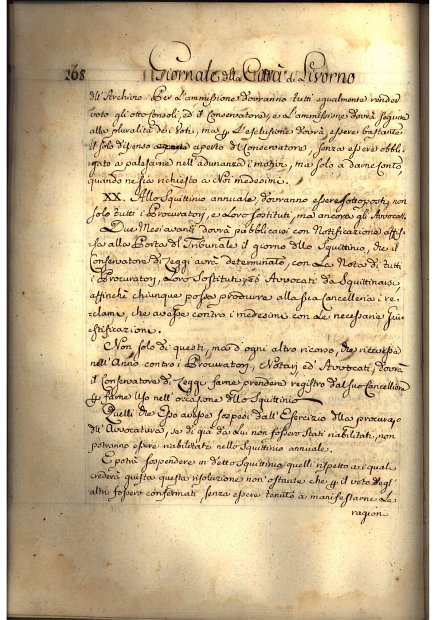 268 Giornale della Città di Livorno
dell'Archivio. Per l'ammissione dovranno tutti egualmente render
voto gli otto Consoli, ed il Conservatore, e l'ammissione dovrà seguire
alla pluralità dei Voti, ma p l'esclusione dovrà essere bastante
il solo dissenso aperto di Conservatore, senza essere obbli-
gato a palesarne nell'adunanza i motivi, ma solo a darne conto,
quando ne sia richiesto a Noi medesimi.
XX. Allo Squittinio annuale dovranno essere sottoposti non
solo tutti i Procuratori, e Loro sostituti, ma ancora gli Avvocati.
Due Mesi avanti dovrà pubblicarsi con Notificazione affis-
sa alla Porta del Tribunale il giorno dello Squittinio, che il
Conservatore di Leggi avrà determinato, con la Nota di tutti
i Procuratori, Loro Sostituti, ed Avvocati da Squittinarsi,
affinchè chiunque possa produrre alla sua Cancelleria i re-
clami, che avesse contro i medesimi con le necessarie Giu-
stificazioni.
Non solo di questi, ma d'ogni altro ricorso, che ricevesse
nell'Anno contro i Procuratori, Notari, ed Avvocati, dovrà
il Conservatore di Leggi farne prendere registro dal suo Cancelliere
p farne Uso nell'occasione dello Squittinio.
Quelli che Esso avesse sospesi dall'Esercizio della procura, o
dell'Avvocatura, se di già da Lui non fossero stati riabilitati, non
potranno essere riabilitati nello Squittinio annuale.
E potrà sospendere in detto Squittinio quelli rispetto a i quali
crederà giusta questa risoluzione non ostante che p il voto degl'
altri fossero confermati senza essere tenuto a manifestarne le
ragioni